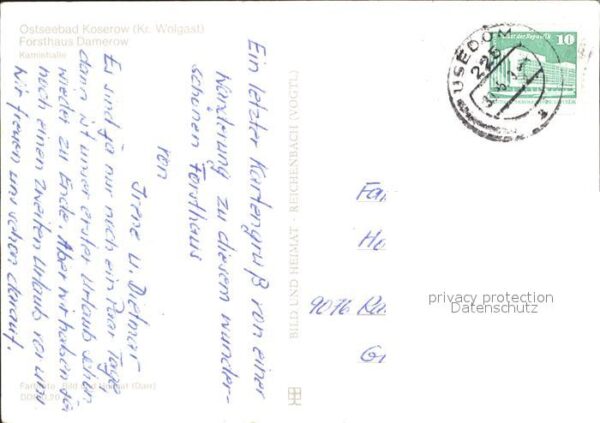 Ostseebad Koserow (Kr. Wolgast)
Forsthaus Damerow
Kaminhalle
Ein letzter Kartengruß von einer
Wanderung zu diesem wunder-
schönen Forsthaus
von
Irene u. Dietmar
Es sind ja nur noch ein Paar Tage,
dann ist unser erster Urlaub schon
wieder zu Ende. Aber wir haben ja
noch einen zweiten Urlaub vor uns
Wir freuen uns schon darauf.
BILD UND HEIMAT · REICHENBACH (VOGTL.)
USEDOM
225
10
Fa
Ho
9076 Ra
G
privacy protection
Datenschutz
Bild und Heimat (Darr)